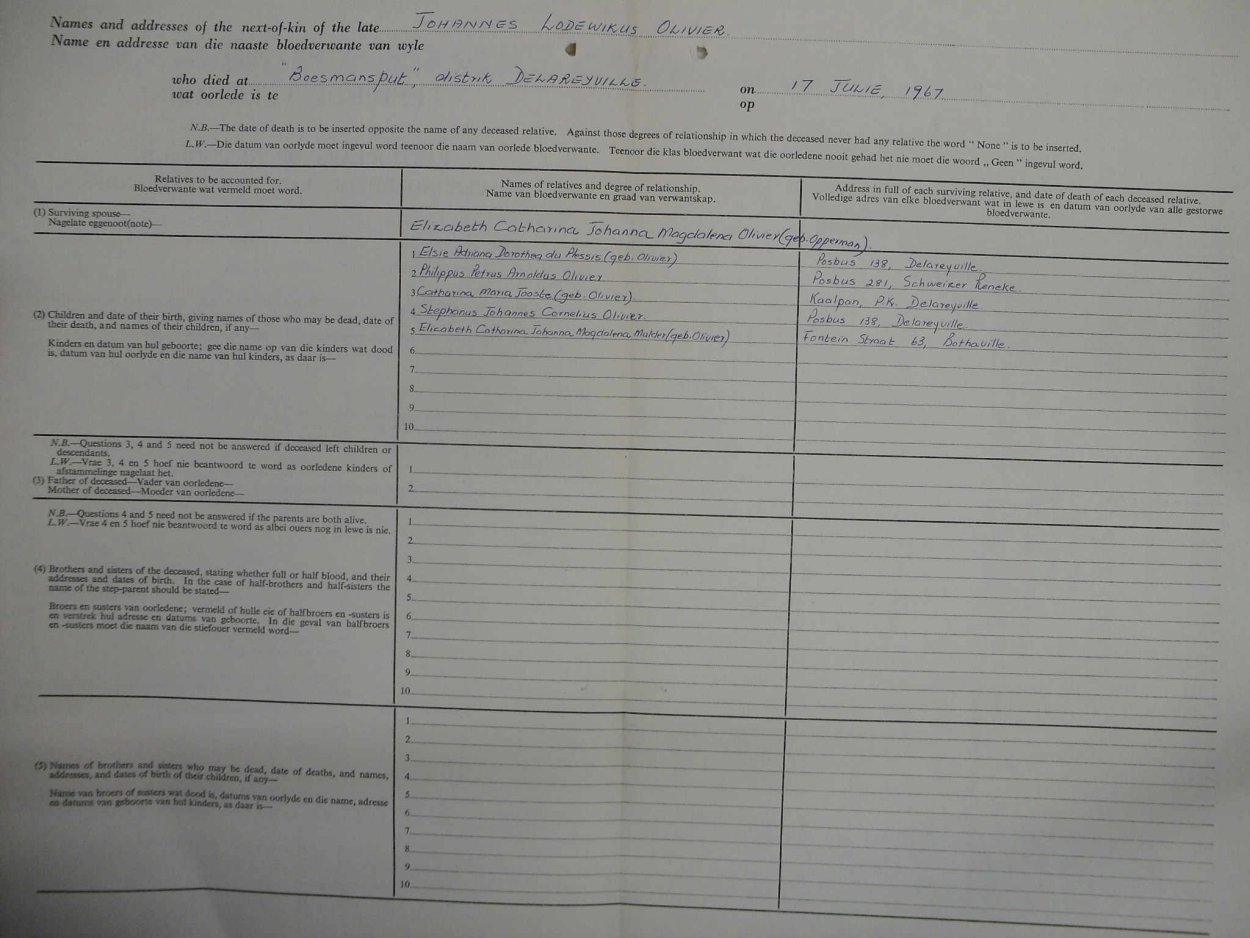 Names and addresses of the next-of-kin of the late JOHANNES LODEWIKUS OLIVIER.
Name en addresse van die naaste bloedverwante van wyle
who died at "Boesmansput", distrik DELAREYVILLE. on 17 JULIE, 1967
wat oorlede is te op
N.B.—The date of death is to be inserted opposite the name of any deceased relative. Against those degrees of relationship in which the deceased never had any relative the word " None " is to be inserted.
L.W.—Die datum van oorlyde moet ingevul word teenoor die naam van oorlede bloedverwante. Teenoor die klas bloedverwant wat die oorledene nooit gehad het nie moet die woord „ Geen " ingevul word.
Relatives to be accounted for.
Bloedverwante wat vermeld moet word.
Names of relatives and degree of relationship.
Name van bloedverwante en graad van verwantskap.
Address in full of each surviving relative, and date of death of each deceased relative.
Volledige adres van elke bloedverwant wat in lewe is en datum van oorlyde van alle gestorwe
bloedverwante.
(1) Surviving spouse—
Nagelate eggenoot(note)—
Elizabeth Catharina Johanna Magdalena Olivier (geb. Opperman).
(2) Children and date of their birth, giving names of those who may be dead, date of
their death, and names of their children, if any—
Kinders en datum van hul geboorte; gee die name op van die kinders wat dood
is, datum van hul oorlyde en die name van hul kinders, as daar is—
1 Elsie Adriana Dorothea du Plessis (geb. Olivier) Posbus 138, Delareyville.
2 Philippus Petrus Arnoldus Olivier Posbus 281, Schweizer Reneke.
3 Catharina Maria Jooste (geb. Olivier) Kaalpan, P.K. Delareyville
4 Stephanus Johannes Cornelius Olivier. Posbus 138, Delareyville.
5 Elizabeth Catharina Johanna Magdalena Mulder (geb. Olivier) Fontein Straat 63, Bothaville.
6
7
8
9
10
N.B.—Questions 3, 4 and 5 need not be answered if deceased left children or
descendants.
L.W.—Vrae 3, 4 en 5 hoef nie beantwoord te word as oorledene kinders of
afstammelinge nagelaat het.
(3) Father of deceased—Vader van oorledene—
Mother of deceased—Moeder van oorledene—
1
2
N.B.—Questions 4 and 5 need not be answered if the parents are both alive.
L.W.—Vrae 4 en 5 hoef nie beantwoord te word as albei ouers nog in lewe is nie.
(4) Brothers and sisters of the deceased, stating whether full or half blood, and their
addresses and dates of birth. In the case of half-brothers and half-sisters the
name of the step-parent should be stated—
Broers en susters van oorledene; vermeld of hulle eie of halfbroers en -susters is
en verstrek hul adresse en datums van geboorte. In die geval van halfbroers
en -susters moet die naam van die stiefouer vermeld word—
1
2
3
4
5
6
7
8
9
10
(5) Names of brothers and sisters who may be dead, date of deaths, and names,
addresses, and dates of birth of their children, if any—
Name van broers of susters wat dood is, datums van oorlyde en die name, adresse
en datums van geboorte van hul kinders, as daar is—
1
2
3
4
5
6
7
8
9
10